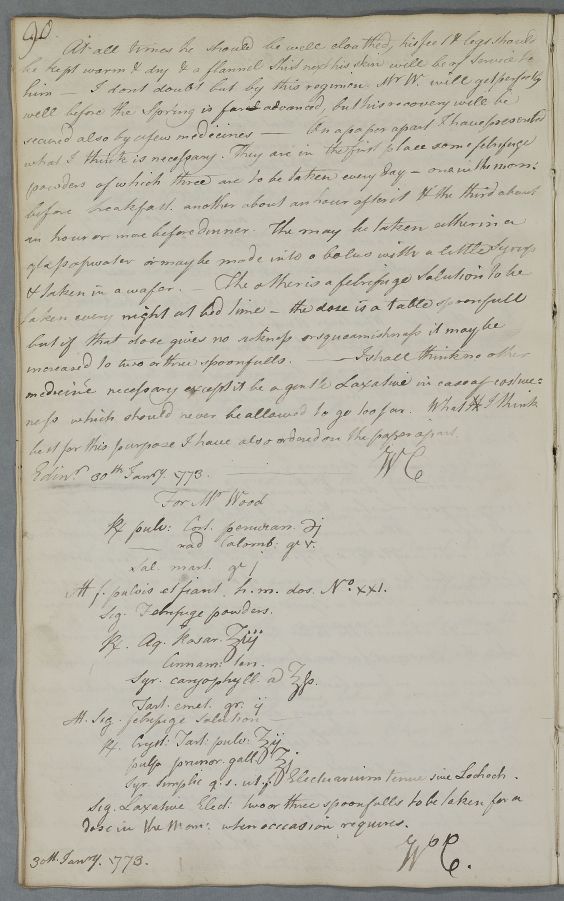 90.
At all times he should be well cloathed, his feet & legs should
be kept warm & dry & a flannel Shirt next his skin will be of Service to
him — I dont doubt but by this regimen Mr W. will get perfectly
well before the Spring is far advanced, but his recovery will be
secured also by a few medecines — On a paper apart I have prescribed
what I think is necessary. They are in the first place some febrifuge
powders of which three are to be taken every day – one in the morn:
before breakfast. another about an hour after it & the third about
an hour or more before dinner. The may be taken either in a
glass of water or may be made into a bolus with a little Syrup
& taken in a wafer. – The other is a febrifuge Solution to be
taken every night at bed time – the dose is a table spoonfull
but if that dose gives no sickness or squeamishness it may be
increased to two or three spoonfulls. — I shall think no other
medicine necessary except it be a gentle Laxative in case of costive:
ness which should never be allowed to go too far. What I think
best for this purpose I have also ordered on the paper apart.
Edinr. 30th Janry. 1773. WC
For Mr Wood
℞ pulv: Cort. peruvian. ℈j
— rad Calomb: gr v.
Sal mart. gr j
M f. pulvis et fiant h. m. dos. No. xxi.
Sig. Febrifuge powders.
℞. Aq. Rosar. ℥iij
Cinnam: ten.
Syr. caryophyll. a ℥ſs.
Tart. emet. gr. ij
M. Sig. febrifuge Solution —
℞. Cryst. Tart. pulv. ℥ij
pulp prunor. gall. ℥j
Syr. simplic q. s. ut f. Electuarium tenue sive Lohoch.
Sig. Laxative Elect. two or three spoonfulls to be taken for a
dose in the morn: when occasion requires.
30th. Janry. 1773. WC.